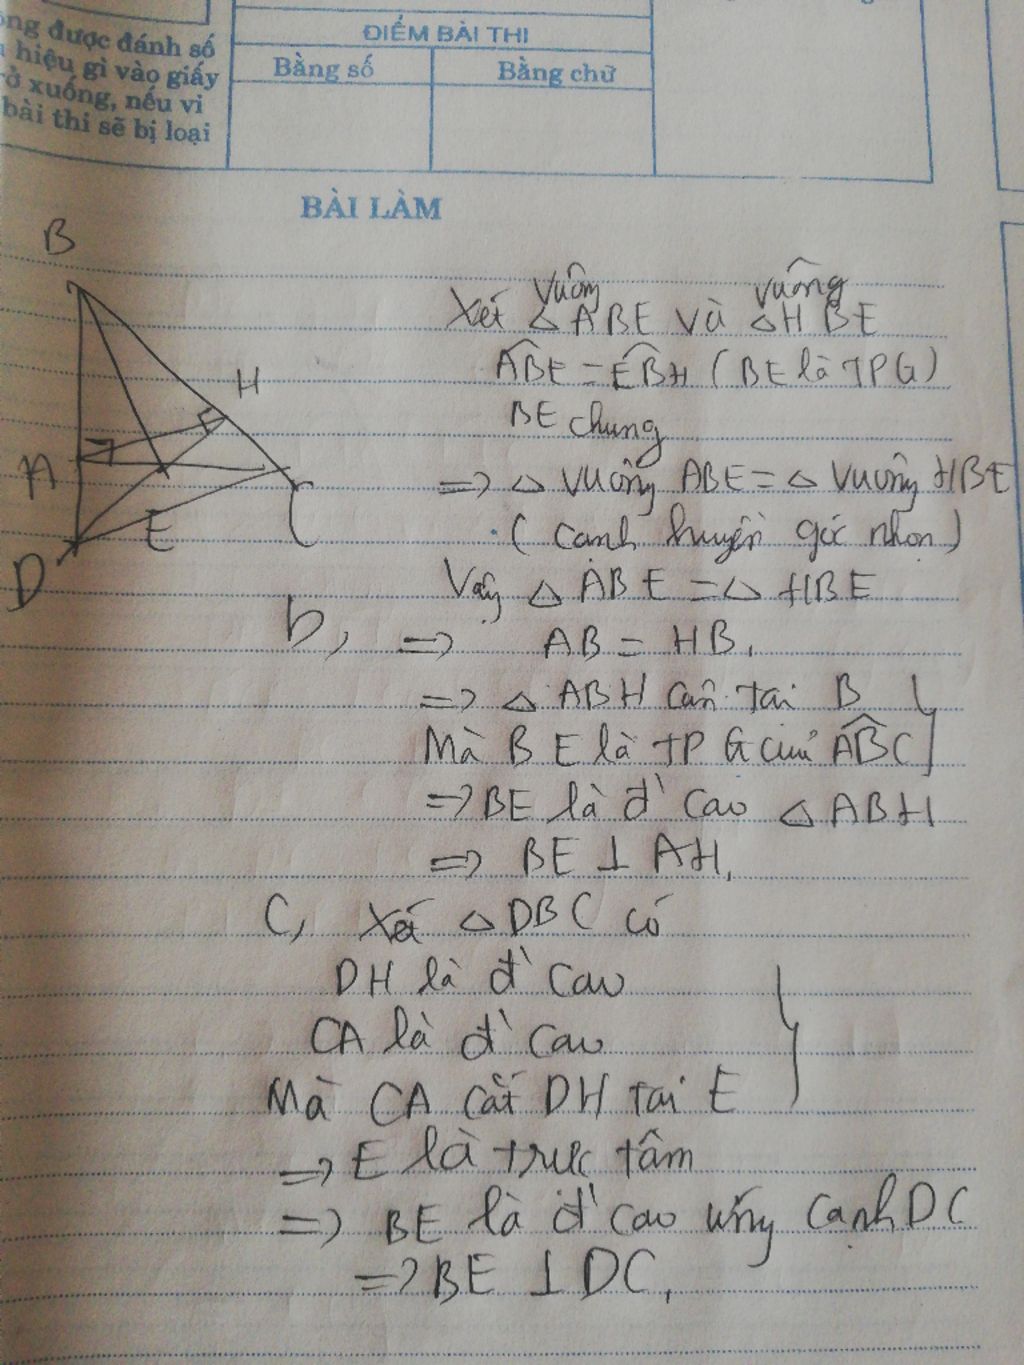 ông được đánh số
hiệu gì vào giấy
rở xuống, nếu vi
bài thi sẽ bị loại
ĐIỂM BÀI THI
Bằng số
Bằng chữ
BÀI LÀM
B
H
A
E
C
D
Xét Δ vuông ABE và Δ vuông HBE
ABE = EBH (BE là TPG)
BE chung
=> Δ vuông ABE = Δ vuông HBE
(cạnh huyền góc nhọn)
Vậy Δ ABE = Δ HBE
b, => AB = HB.
=> Δ ABH cân tại B
Mà BE là TPG của ABC
=> BE là đ' cao Δ ABH
=> BE ⊥ AH.
C, Xét Δ DBC có
DH là đ' cao
CA là đ' cao
Mà CA cắt DH tại E
=> E là trực tâm
=> BE là đ' cao ứng cạnh DC
=> BE ⊥ DC.